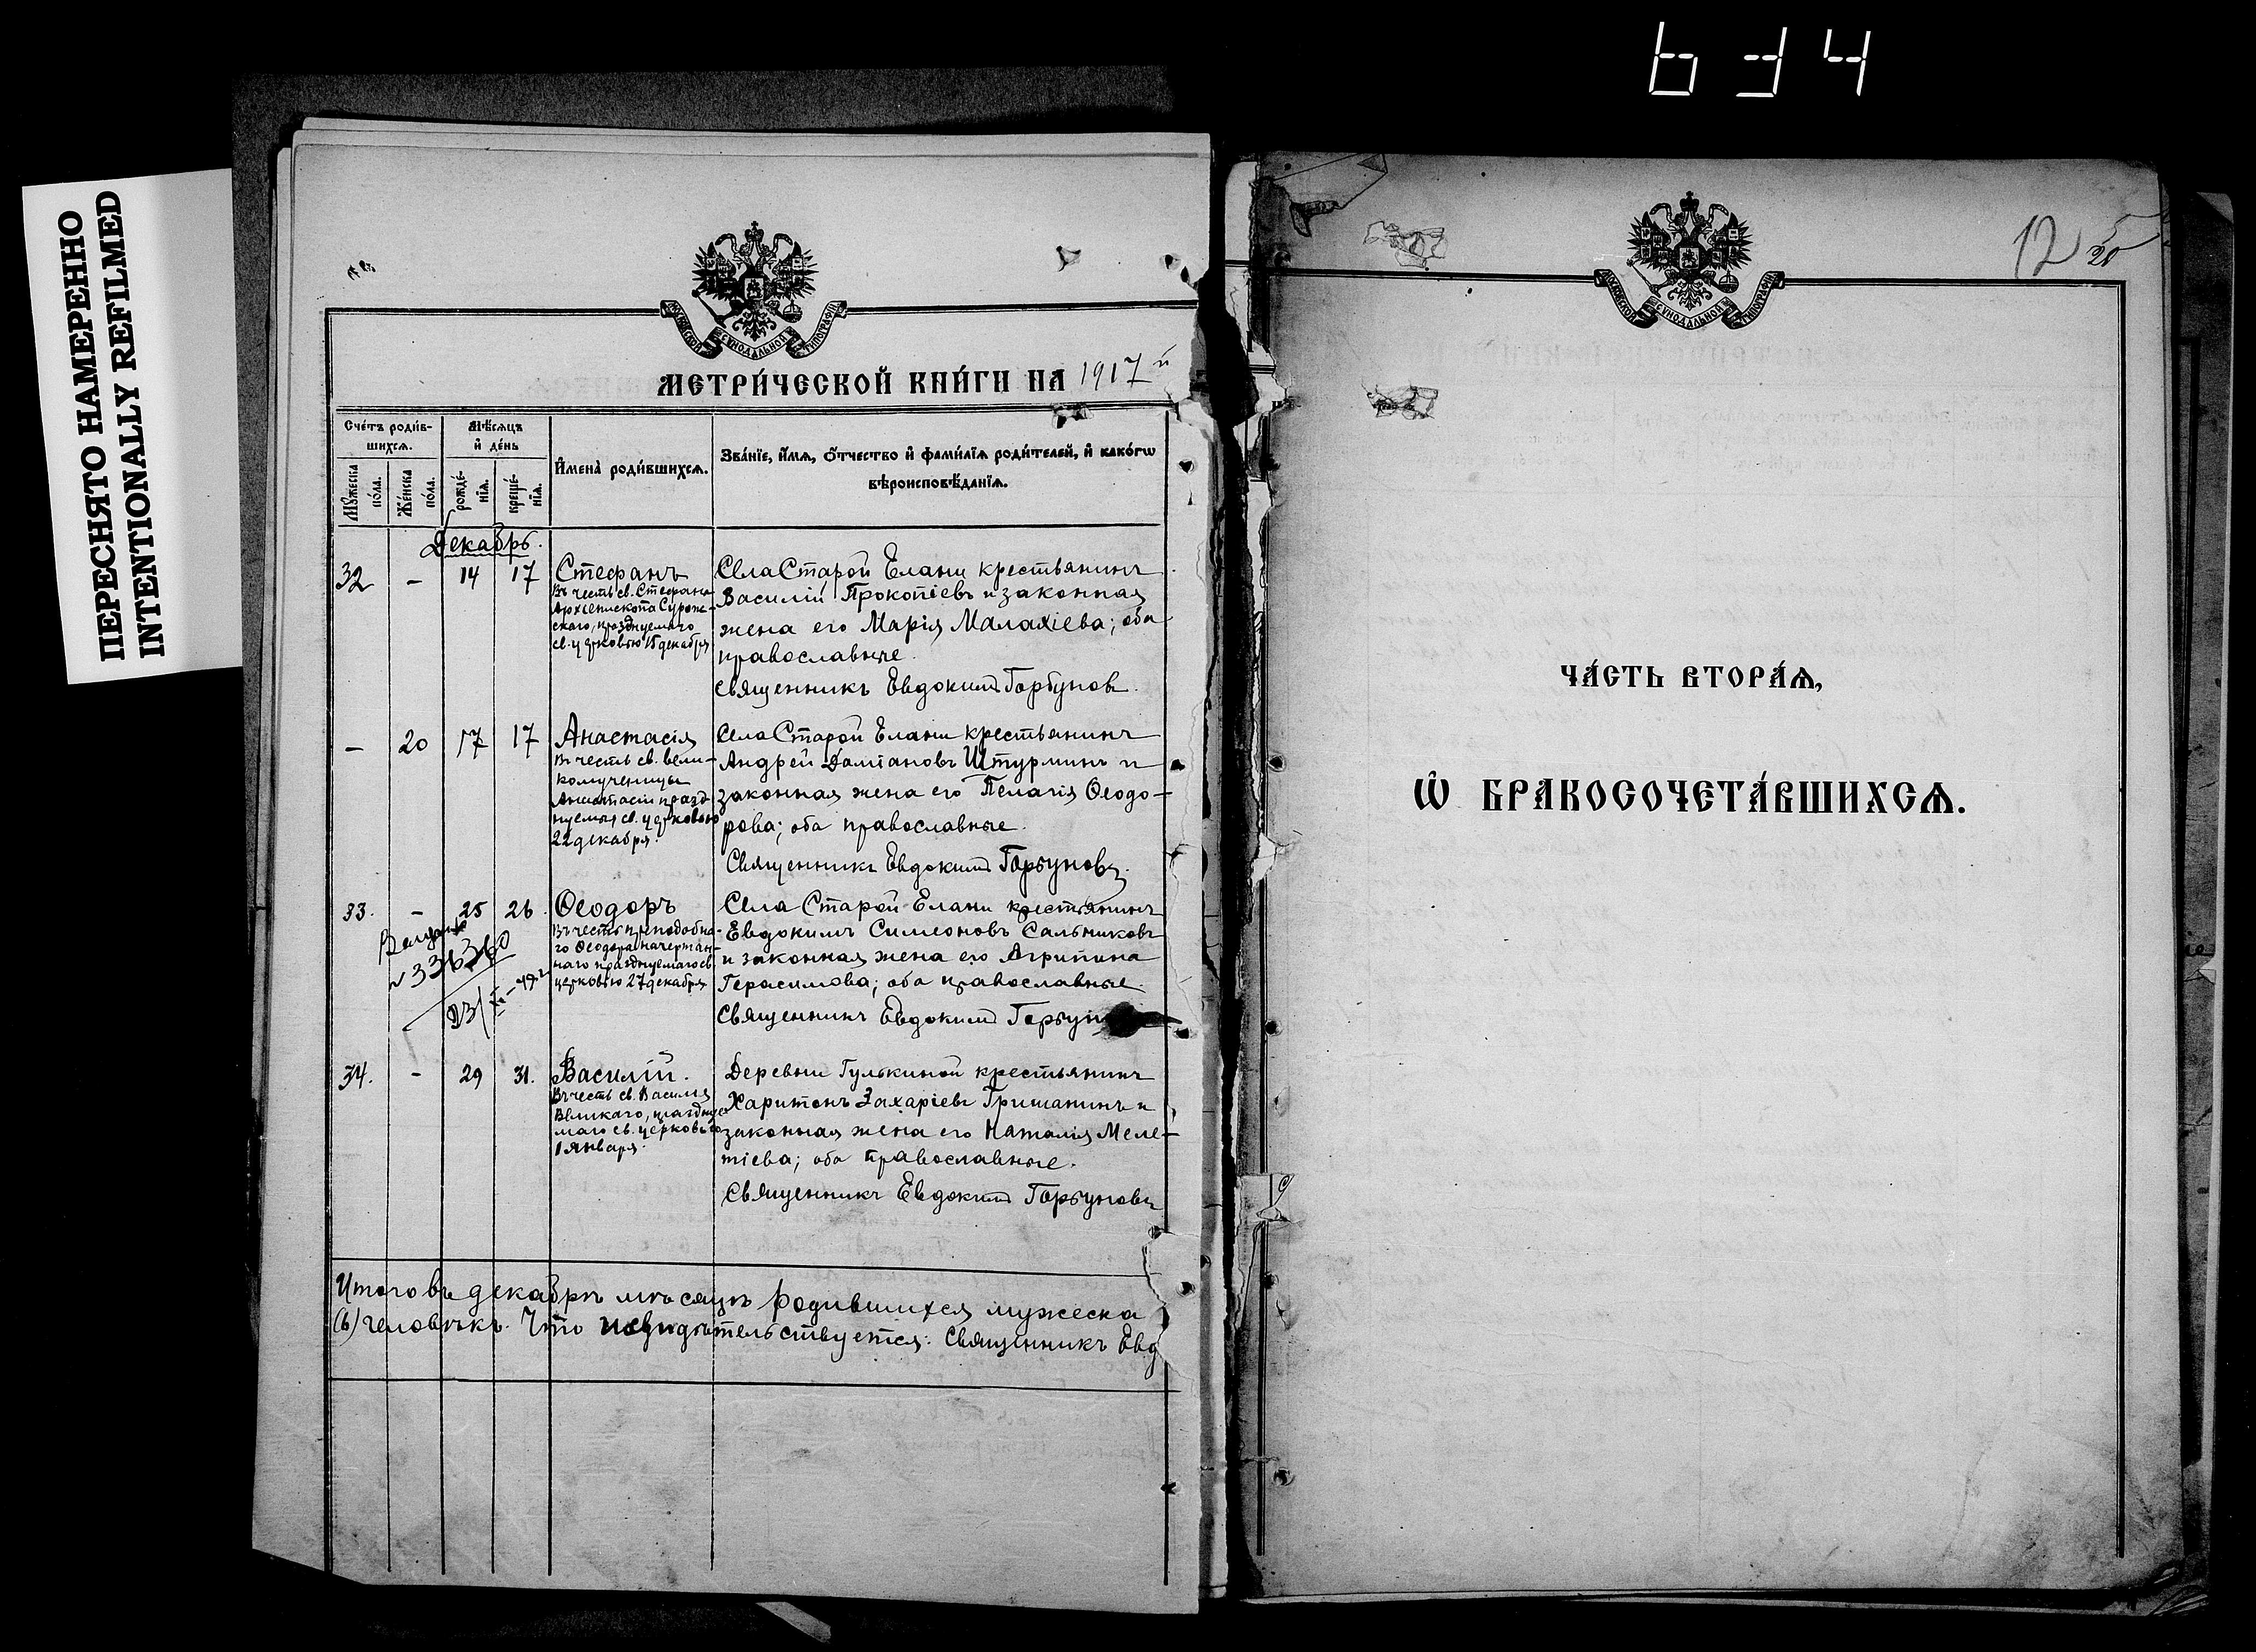 634
ПЕРЕСНЯТО НАМЕРЕННО
INTENTIONALLY REFILMED
МОСКОВСКОЙ СУНОДАЛЬНОЙ ТИПОГРАФІИ
МЕТРИ́ЧЕСКОЙ КНИ́ГИ НА 1917й
Сче́тъ роди́в-
шихсѧ.
Мѣ́сѧцъ
и҆ де́нь
И҆мена̀ роди́вшихсѧ.
Зва́нїе, и҆́мѧ, ѻ҆́тчество и҆ фами́лїѧ роди́телей, и҆ како́гѡ
вѣроисповѣ́данїѧ.
Мꙋ́жеска
по́ла.
Же́нска
по́ла.
рожде́-
нїѧ.
креще́-
нїѧ.
Декабрь.
32 – 14 17
Стефанъ
Въ честь св. Стефана
Архіепископа Сурож-
скаго, празднуемаго
св. церковью 15 декабря
Села Старой Елани крестьянинъ
Василій Прокопіевъ и законная
жена его Марія Малахіева; оба
православные.
Священникъ Евдокимъ Горбуновъ.
– 20 17 17
Анастасія
Въ честь св. вели-
комученицы
Анастасіи празд-
нуемыя св. церковью
22 декабря.
Села Старой Елани крестьянинъ
Андрей Даміановъ Штурминъ и
законная жена его Пелагія Ѳеодо-
рова; оба православные.
Священникъ Евдокимъ Горбуновъ.
33. – 25 26.
Ѳеодоръ
Въ честь преподобна-
го Ѳеодора начертан-
наго празднуемаго св.
церковью 27 декабря
Села Старой Елани крестьянинъ
Евдокимъ Симеоновъ Сальниковъ
и законная жена его Агрипина
Герасимова; оба православные.
Священникъ Евдокимъ Горбун
34. – 29 31.
Василій.
Въ честь св. Василія
Великаго, празднуе-
маго св. церковью
1 января.
Деревни Гулькиной крестьянинъ
Харитонъ Захаріевъ Гришанинъ и
законная жена его Наталія Меле-
тіева; оба православные.
Священникъ Евдокимъ Горбуновъ
Итого въ декабрѣ мѣсяцѣ родившихся мужеска
человѣкъ. Что и свидѣтельствуется: Священникъ Евд
МОСКОВСКОЙ СУНОДАЛЬНОЙ ТИПОГРАФІИ
12
ЧА́СТЬ ВТОРА́Ѧ,
Ѽ БРАКОСОЧЕТА́ВШИХСѦ.